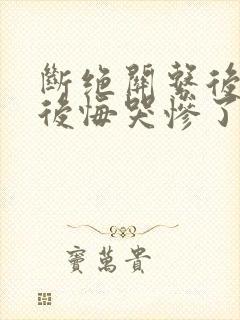 斷絕關繫後
後悔哭慘了
竇萬貴